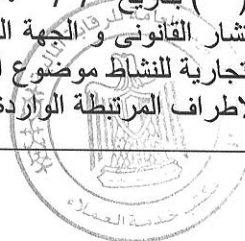 بتاريخ / /
شار القانونى و الجهة ال
تجارية للنشاط موضوع ا
لاطراف المرتبطة الواردة
خدمة العملاء